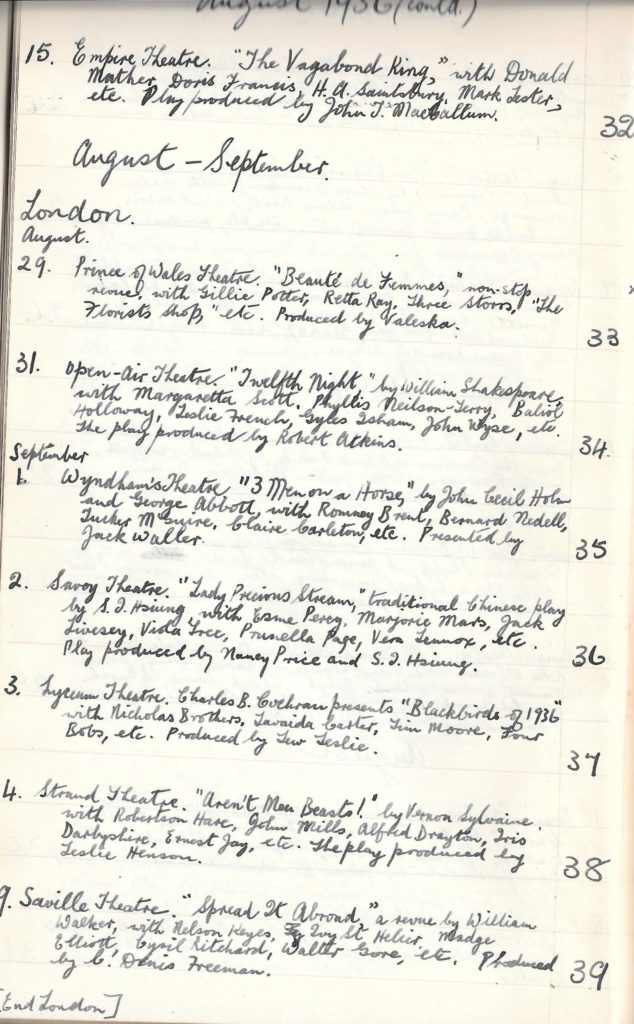 August 1936 (contd.)
15. Empire Theatre. "The Vagabond King," with Donald
Mather, Doris Francis, H. A. Saintsbury, Mark Lester,
etc. Play produced by John T. MacCallum.
32
August – September.
London.
August.
29. Prince of Wales Theatre. "Beauté de Femmes," non-stop
revue, with Gillie Potter, Retta Ray, Three Storrs, "The
Florists Shop," etc. Produced by Valeska.
33
31. Open-Air Theatre. "Twelfth Night," by William Shakespeare,
with Margaretta Scott, Phyllis Neilson-Terry, Baliol
Holloway, Leslie French, Gyles Isham, John Wyse, etc.
The play produced by Robert Atkins.
34
September
1. Wyndham's Theatre "3 Men on a Horse," by John Cecil Holm
and George Abbott, with Romney Brent, Bernard Nedell,
Tucker McGuire, Claire Carleton, etc. Presented by
Jack Waller.
35
2. Savoy Theatre. "Lady Precious Stream," traditional Chinese play
by S. I. Hsiung with Esme Percy, Marjorie Mars, Jack
Livesey, Viola Tree, Prunella Page, Vera Lennox, etc.
Play produced by Nancy Price and S. I. Hsiung.
36
3. Lyceum Theatre. Charles B. Cochran presents "Blackbirds of 1936"
with Nicholas Brothers, Lavaida Carter, Tim Moore, Four
Bobs, etc. Produced by Lew Leslie.
37
4. Strand Theatre. "Aren't Men Beasts!" by Vernon Sylvaine.
with Robertson Hare, John Mills, Alfred Drayton, Iris
Darbyshire, Ernest Jay, etc. The play produced by
Leslie Henson.
38
9. Saville Theatre. "Spread It Abroad," a revue by William
Walker, with Nelson Keyes, Ivy St. Helier, Madge
Elliott, Cyril Ritchard, Walter Gore, etc. Produced
by C. Denis Freeman.
39
[End London]